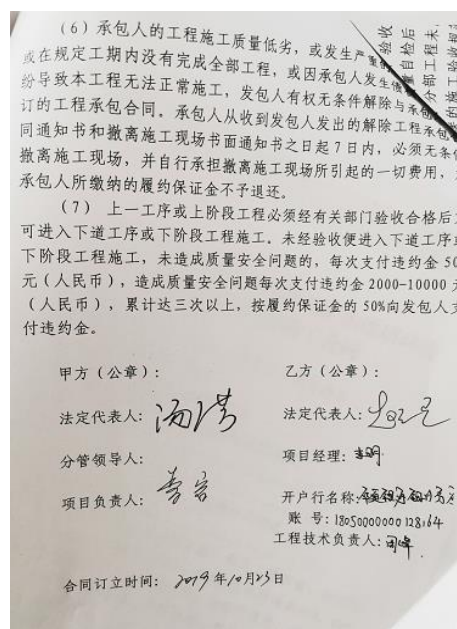 (6)承包人的工程施工质量低劣，或发生严重
或在规定工期内没有完成全部工程，或因承包人发生债
纷导致本工程无法正常施工，发包人有权无条件解除与承包
订的工程承包合同。承包人从收到发包人发出的解除工程承包
同通知书和撤离施工现场书面通知书之日起7日内，必须无条
撤离施工现场，并自行承担撤离施工现场所引起的一切费用，
承包人所缴纳的履约保证金不予退还。
(7) 上一工序或上阶段工程必须经有关部门验收合格后
可进入下道工序或下阶段工程施工。未经验收便进入下道工序
下阶段工程施工，未造成质量安全问题的，每次支付违约金50
元（人民币），造成质量安全问题每次支付违约金2000-10000
（人民币），累计达三次以上，按履约保证金的50%向发包人支
付违约金。
甲方（公章）： 乙方（公章）：
法定代表人： 法定代表人：
分管领导人： 项目经理：
项目负责人： 开户行名称：
账 号：18050000000128164
工程技术负责人：
合同订立时间： 2019年10月23日
验收
自检后
分部工程未